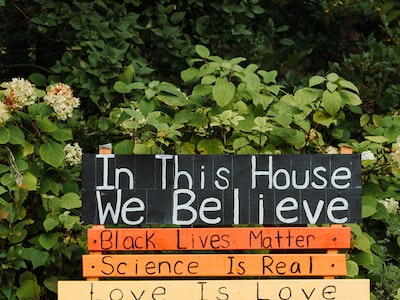 In This House
We Believe
Black Lives Matter
Science Is Real
Love Is Love